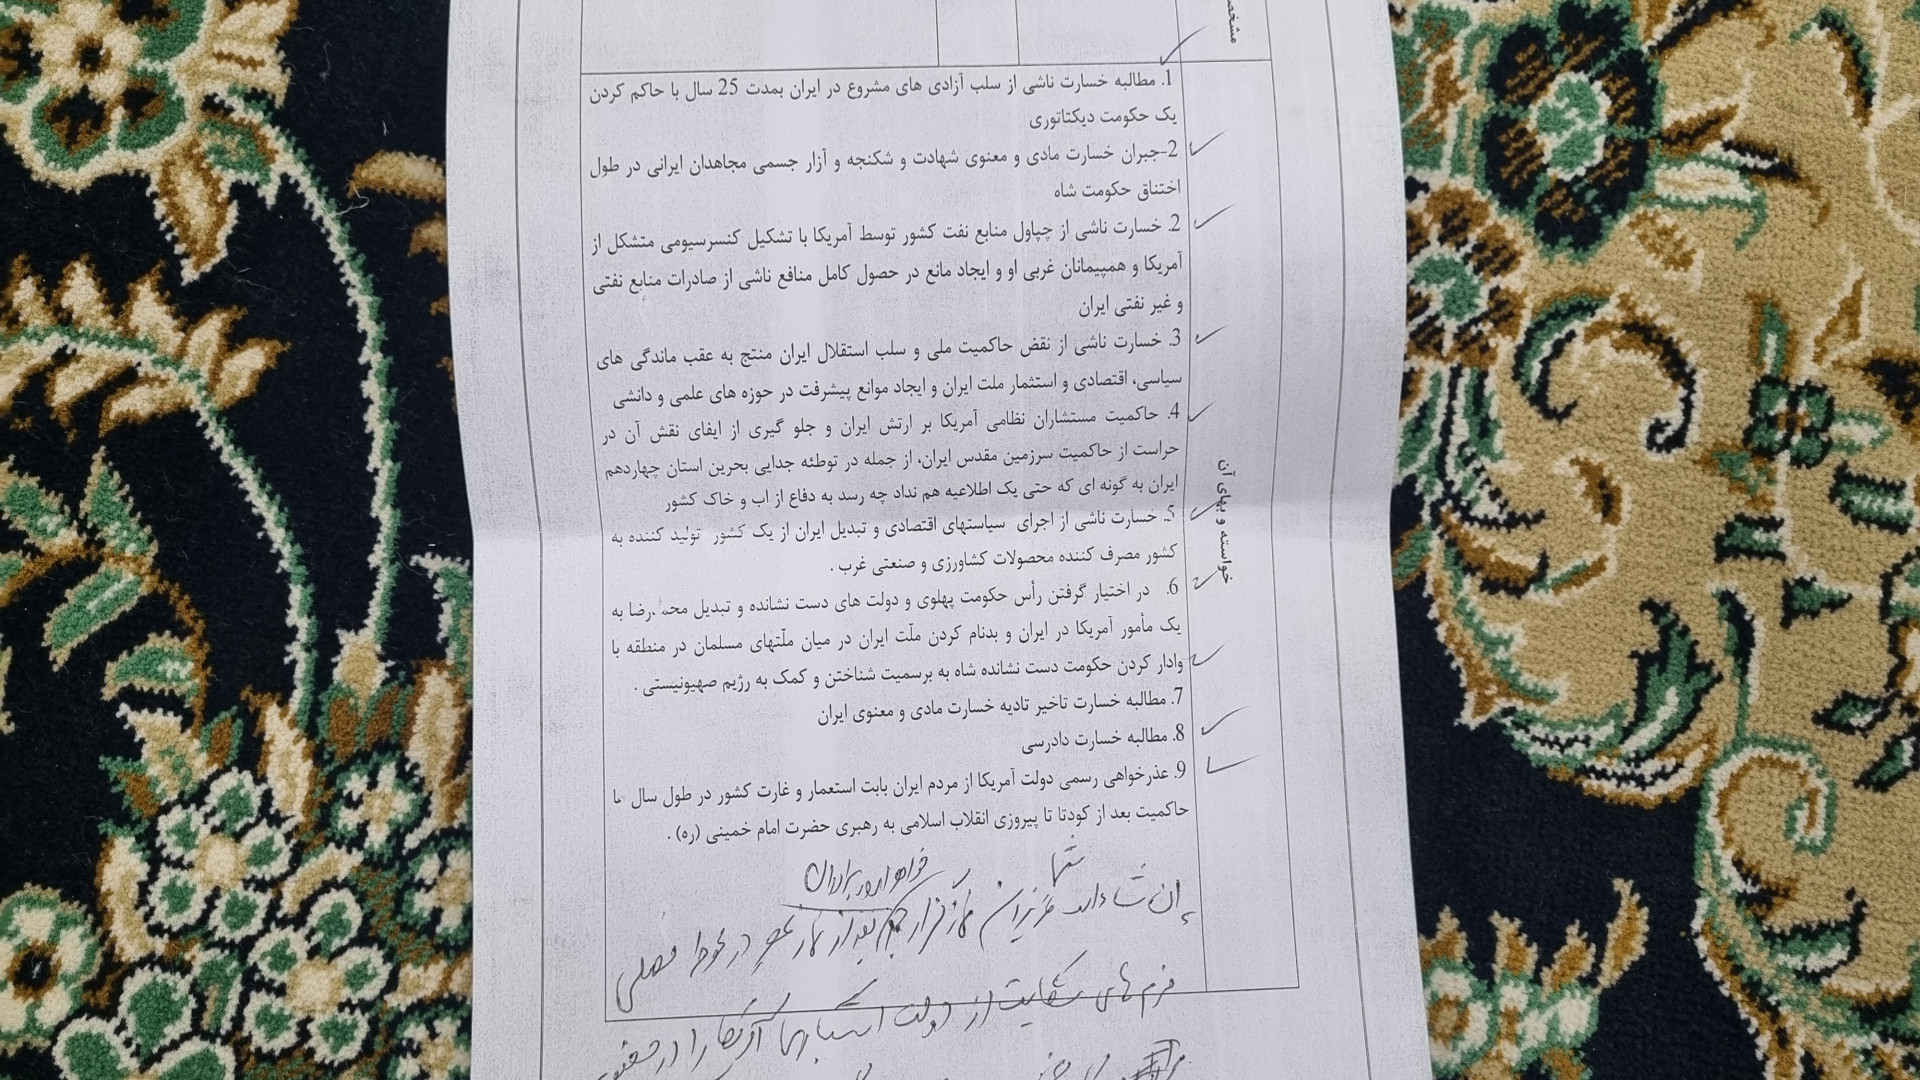 مشخص
1. مطالبه خسارت ناشی از سلب آزادی های مشروع در ایران بمدت 25 سال با حاکم کردن
یک حکومت دیکتاتوری
2-جبران خسارت مادی و معنوی شهادت و شکنجه و آزار جسمی مجاهدان ایرانی در طول
اختناق حکومت شاه
2. خسارت ناشی از چپاول منابع نفت کشور توسط آمریکا با تشکیل کنسرسیومی متشکل از
آمریکا و همپیمانان غربی او و ایجاد مانع در حصول کامل منافع ناشی از صادرات منابع نفتی
و غیر نفتی ایران
3. خسارت ناشی از نقض حاکمیت ملی و سلب استقلال ایران منتج به عقب ماندگی های
سیاسی، اقتصادی و استثمار ملت ایران و ایجاد موانع پیشرفت در حوزه های علمی و دانشی
4. حاکمیت مستشاران نظامی آمریکا بر ارتش ایران و جلو گیری از ایفای نقش آن در
حراست از حاکمیت سرزمین مقدس ایران، از جمله در توطئه جدایی بحرین استان چهاردهم
ایران به گونه ای که حتی یک اطلاعیه هم نداد چه رسد به دفاع از اب و خاک کشور
5. خسارت ناشی از اجرای سیاستهای اقتصادی و تبدیل ایران از یک کشور تولید کننده به
کشور مصرف کننده محصولات کشاورزی و صنعتی غرب .
خواسته و بهای آن
6. در اختیار گرفتن رأس حکومت پهلوی و دولت های دست نشانده و تبدیل محمدرضا به
یک مأمور آمریکا در ایران و بدنام کردن ملّت ایران در میان ملّتهای مسلمان در منطقه با
وادار کردن حکومت دست نشانده شاه به برسمیت شناختن و کمک به رژیم صهیونیستی .
7. مطالبه خسارت تاخیر تادیه خسارت مادی و معنوی ایران
8. مطالبه خسارت دادرسی
9. عذرخواهی رسمی دولت آمریکا از مردم ایران بابت استعمار و غارت کشور در طول سال ها
حاکمیت بعد از کودتا تا پیروزی انقلاب اسلامی به رهبری حضرت امام خمینی (ره) .
شما
إن شاءالله عزیزان نمازگزار بعد از نماز عصر در مصلی
فرم های شکایت از دولت آمریکا را در